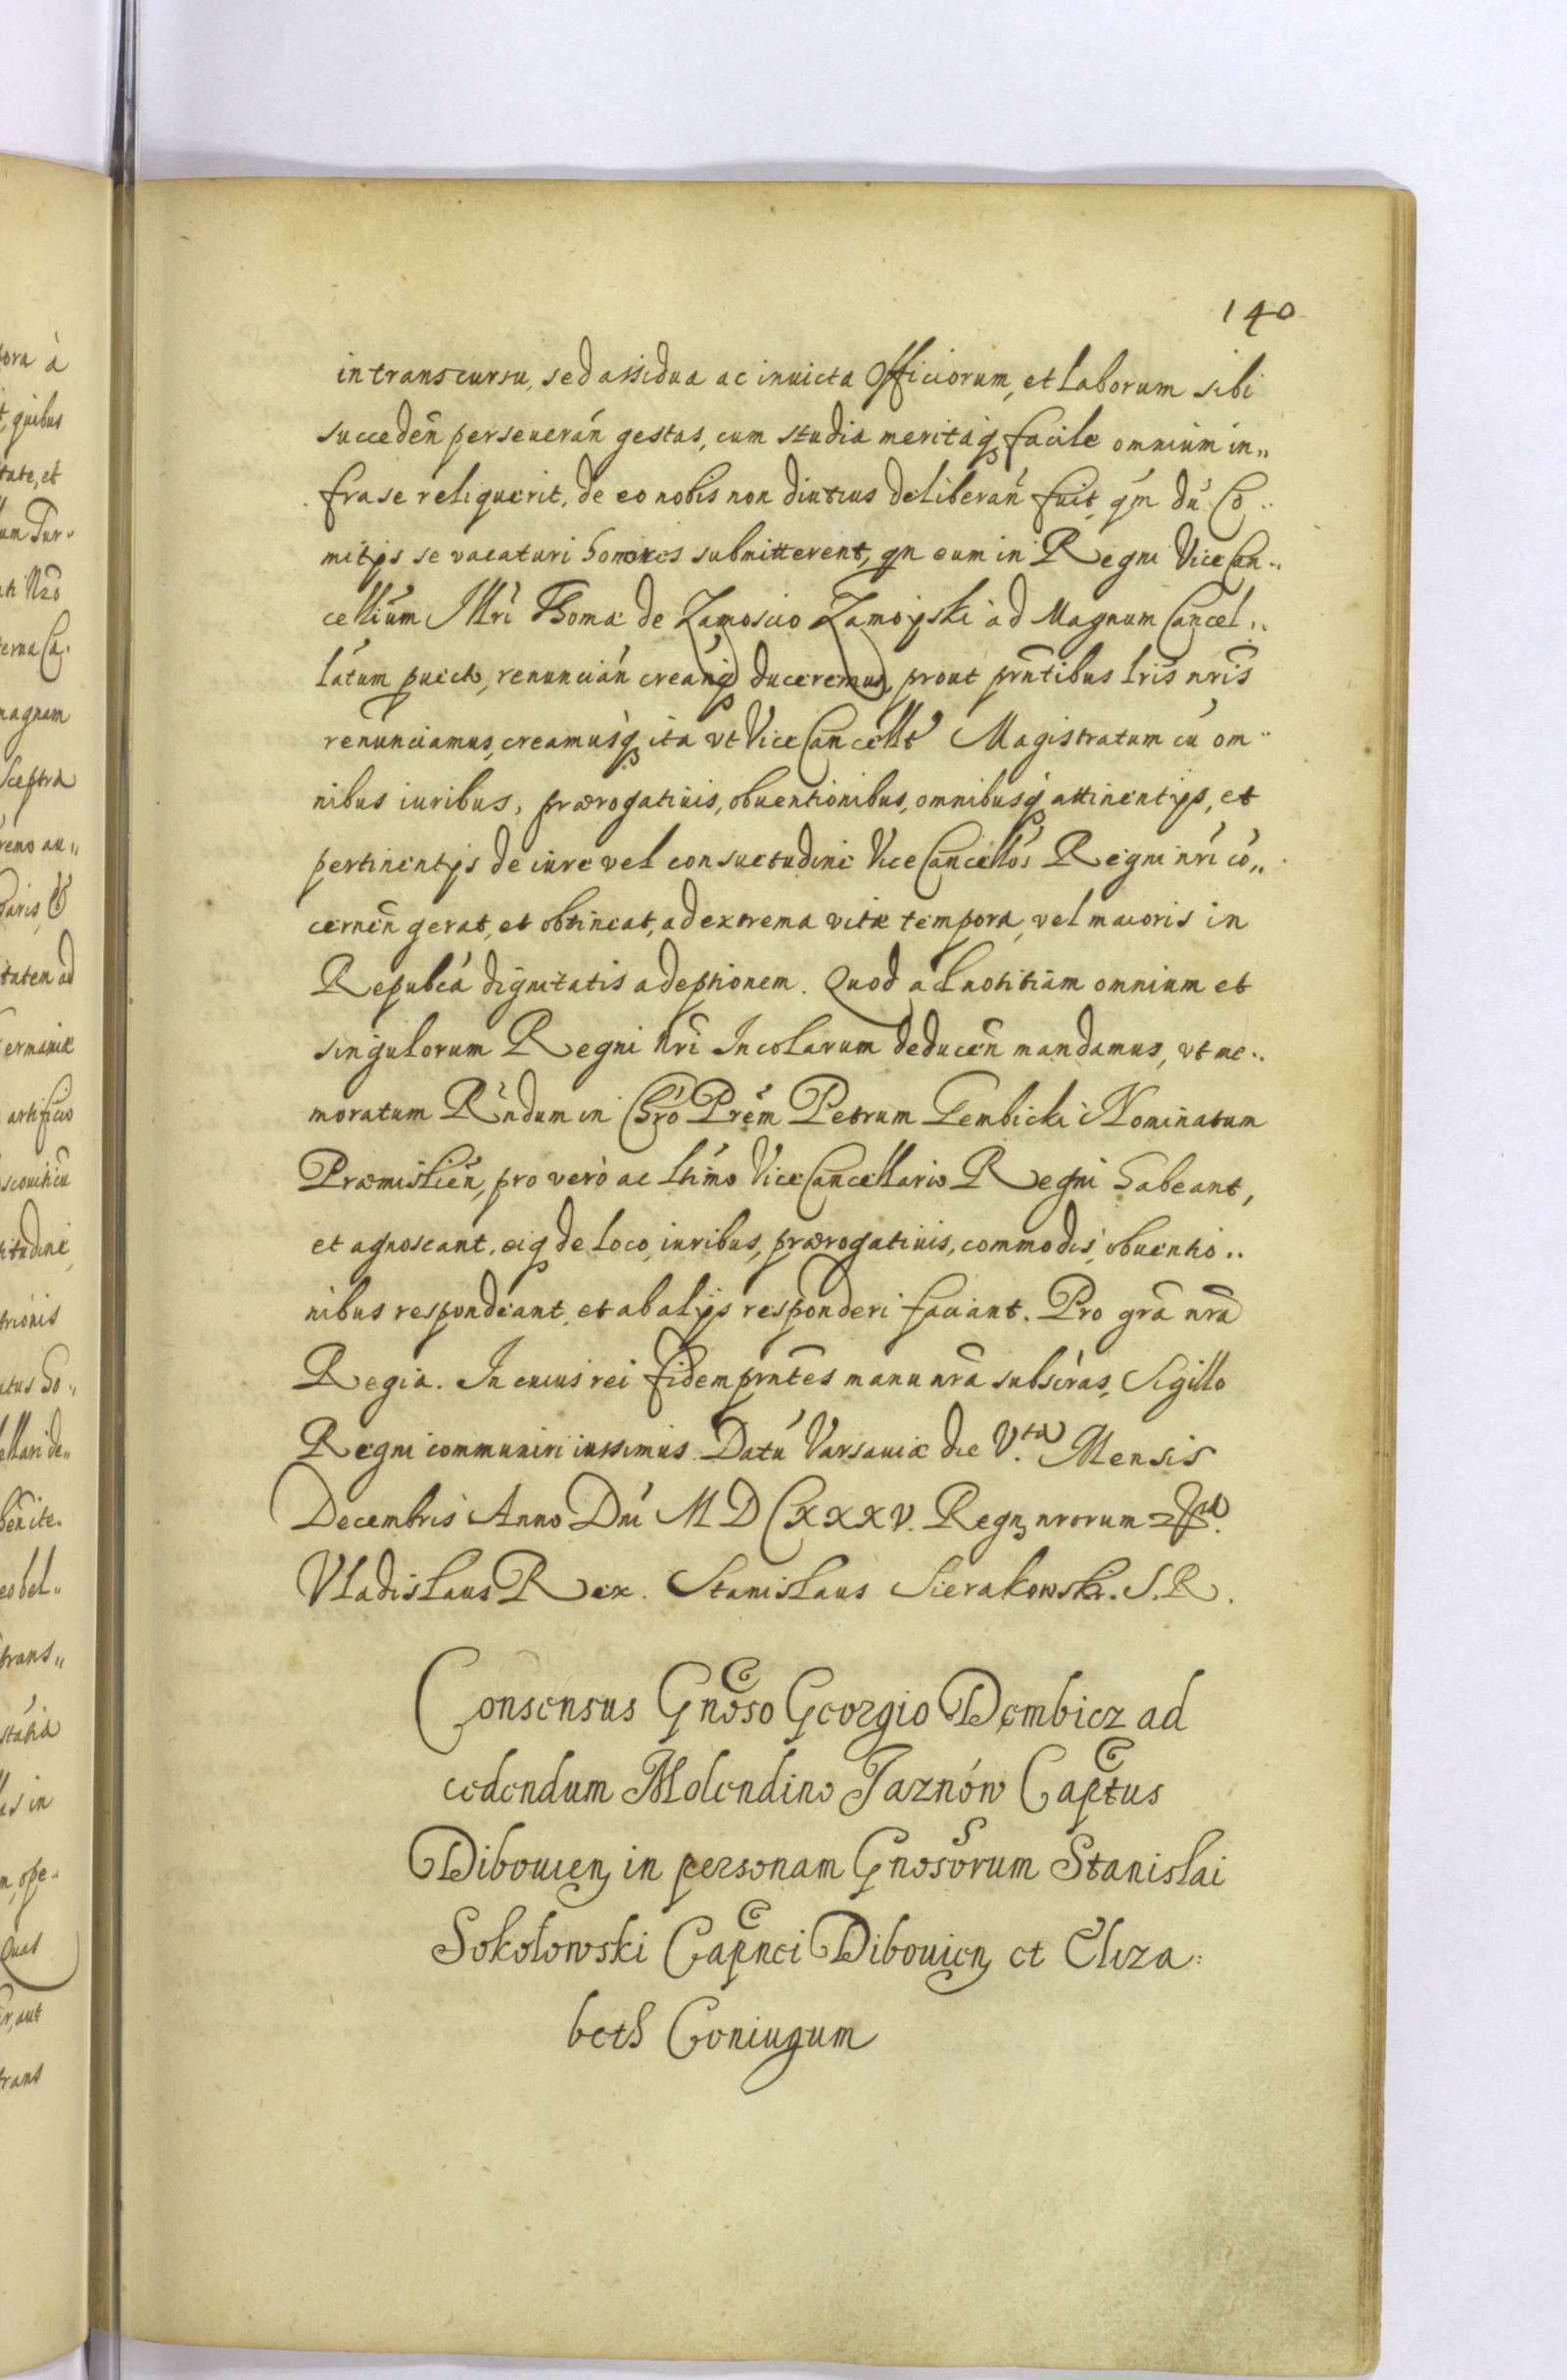 140
in transcursu, sed assidua ac inuicta Officiorum, et Laborum sibi
succedeñ perseuerań gestas, cum studia meritaq́ facile omnium in„
fra se reliquerit, de eo nobis non diutius deliberań fuit, qm̄ dú Co„
mitijs se vacaturi honores submitterent, qn eum in Regni Vice Can„
cellium Illri Thomæ de Zamoscio Zamoyski ad Magnum Cancel„
latum euecto, renunciań creańq́ duceremus, prout prñtibus lr̃is nr̃is
renunciamus, creamusq́ ita vt Vice Cancellt́ Magistratum cú om„
nibus iuribus, prærogatiuis, obuentionibus, omnibusq́ attinentijs, et
pertinentijs de iure vel consuetudine Vice Cancellós Regni nri có„
cerneñ gerat, et obtineat, ad extrema vitæ tempora, vel maioris in
Republcá dignitatis adeptionem. Quod ad notitiam omnium et
singulorum Regni nr̃i Incolarum deduceñ mandamus, vt me„
moratum Rńdum in Chró Prẽm Petrum Gembicki Nominatum
Præmislieñ, pro vero ac lt́imo Vice Cancellario Regni habeant,
et agnoscant, eiq́ de loco, iuribus, prærogatiuis, commodis, obuentio„
nibus respondeant, et ab alijs responderi faciant. Pro gr̃a nr̃a
Regia. In cuius rei fidem prñtes manu nr̃a subscras, Sigillo
Regni communiri iussimus. Datú Varsauiæ die V.ta Mensis
Decembris Anno Dni M D C XXX V. Regn̄ nrorum
Vladislaus Rex. Stanislaus Sierakowski. S. R.
Consensus Gnoso Georgio Dembicz ad
cedendum Molendino Jaznów Captus
Dibouien̄ in personam Gnosorum Stanislai
Sokołowski Capnei Dibouien̄ et Eliza:
beth Coniugum